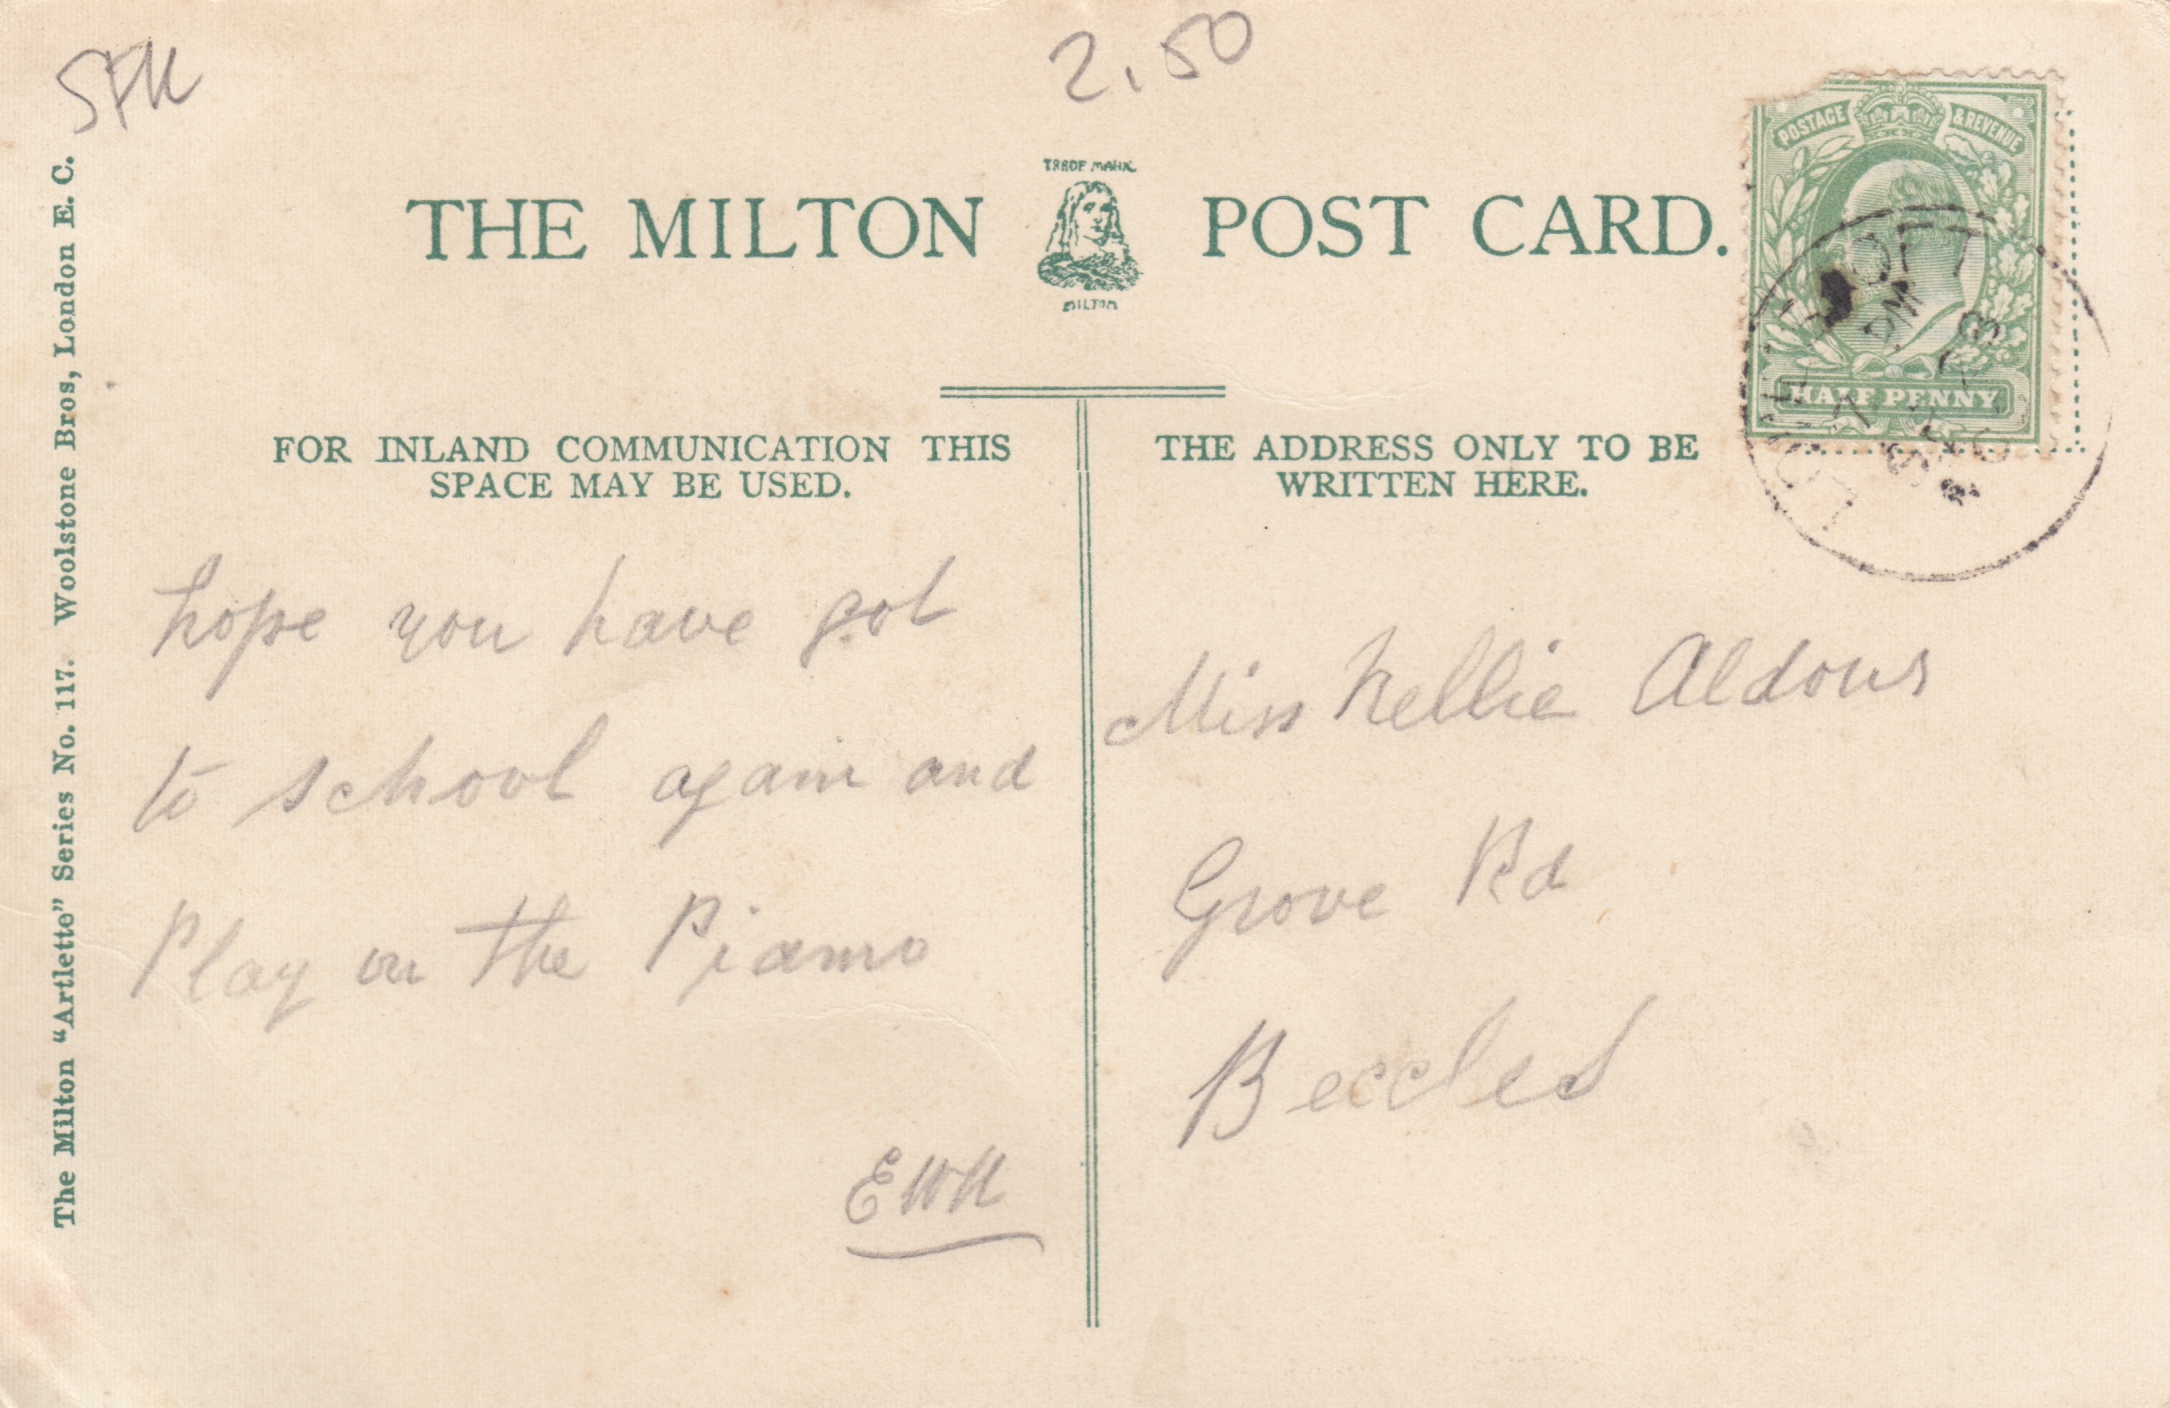 SFK
2.50
THE MILTON POST CARD.
TRADE MARK
MILTON
POSTAGE & REVENUE
HALF PENNY
LOWESTOFT
PM
The Milton "Artletto" Series No. 117. Woolstone Bros, London E. C.
FOR INLAND COMMUNICATION THIS
SPACE MAY BE USED.
THE ADDRESS ONLY TO BE
WRITTEN HERE.
hope you have got
to school again and
Play on the Piano
EWK
Miss Nellie Aldous
Grove Rd
Beccles